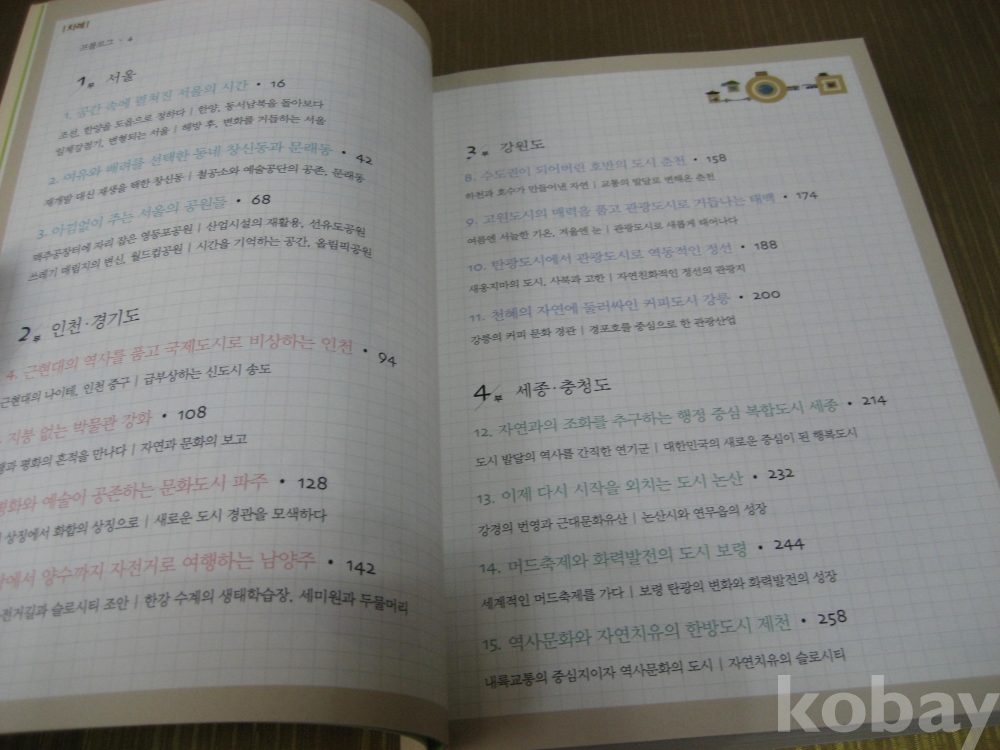 |차례|
프롤로그 • 4
1부 서울
1. 공간 속에 펼쳐진 서울의 시간 • 16
조선, 한양을 도읍으로 정하다 | 한양, 동서남북을 돌아보다
일제강점기, 변형되는 서울 | 해방 후, 변화를 거듭하는 서울
2. 여유와 배려를 선택한 동네 창신동과 문래동 • 42
재개발 대신 재생을 택한 창신동 | 철공소와 예술공단의 공존, 문래동
3. 아낌없이 주는 서울의 공원들 • 68
맥주공장터에 자리 잡은 영등포공원 | 산업시설의 재활용, 선유도공원
쓰레기 매립지의 변신, 월드컵공원 | 시간을 기억하는 공간, 올림픽공원
2부 인천·경기도
4. 근현대의 역사를 품고 국제도시로 비상하는 인천 • 94
근현대의 나이테, 인천 중구 | 급부상하는 신도시 송도
지붕 없는 박물관 강화 • 108
평화의 흔적을 만나다 | 자연과 문화의 보고
예술이 공존하는 문화도시 파주 • 128
상징에서 화합의 상징으로 | 새로운 도시 경관을 모색하다
양수까지 자전거로 여행하는 남양주 • 142
슬로시티 조안 | 한강 수계의 생태학습장, 세미원과 두물머리
3부 강원도
8. 수도권이 되어버린 호반의 도시 춘천 • 158
하천과 호수가 만들어낸 자연 | 교통의 발달로 변해온 춘천
9. 고원도시의 매력을 품고 관광도시로 거듭나는 태백 • 174
여름엔 서늘한 기온, 겨울엔 눈 | 관광도시로 새롭게 태어나다
10. 탄광도시에서 관광도시로 역동적인 정선 • 188
새옹지마의 도시, 사북과 고한 | 자연친화적인 정선의 관광지
11. 천혜의 자연에 둘러싸인 커피도시 강릉 • 200
강릉의 커피 문화 경관 | 경포호를 중심으로 한 관광산업
4부 세종·충청도
12. 자연과의 조화를 추구하는 행정 중심 복합도시 세종 • 214
도시 발달의 역사를 간직한 연기군 | 대한민국의 새로운 중심이 된 행복도시
13. 이제 다시 시작을 외치는 도시 논산 • 232
강경의 번영과 근대문화유산 | 논산시와 연무읍의 성장
14. 머드축제와 화력발전의 도시 보령 • 244
세계적인 머드축제를 가다 | 보령 탄광의 변화와 화력발전의 성장
15. 역사문화와 자연치유의 한방도시 제천 • 258
내륙교통의 중심지이자 역사문화의 도시 | 자연치유의 슬로시티
kobay